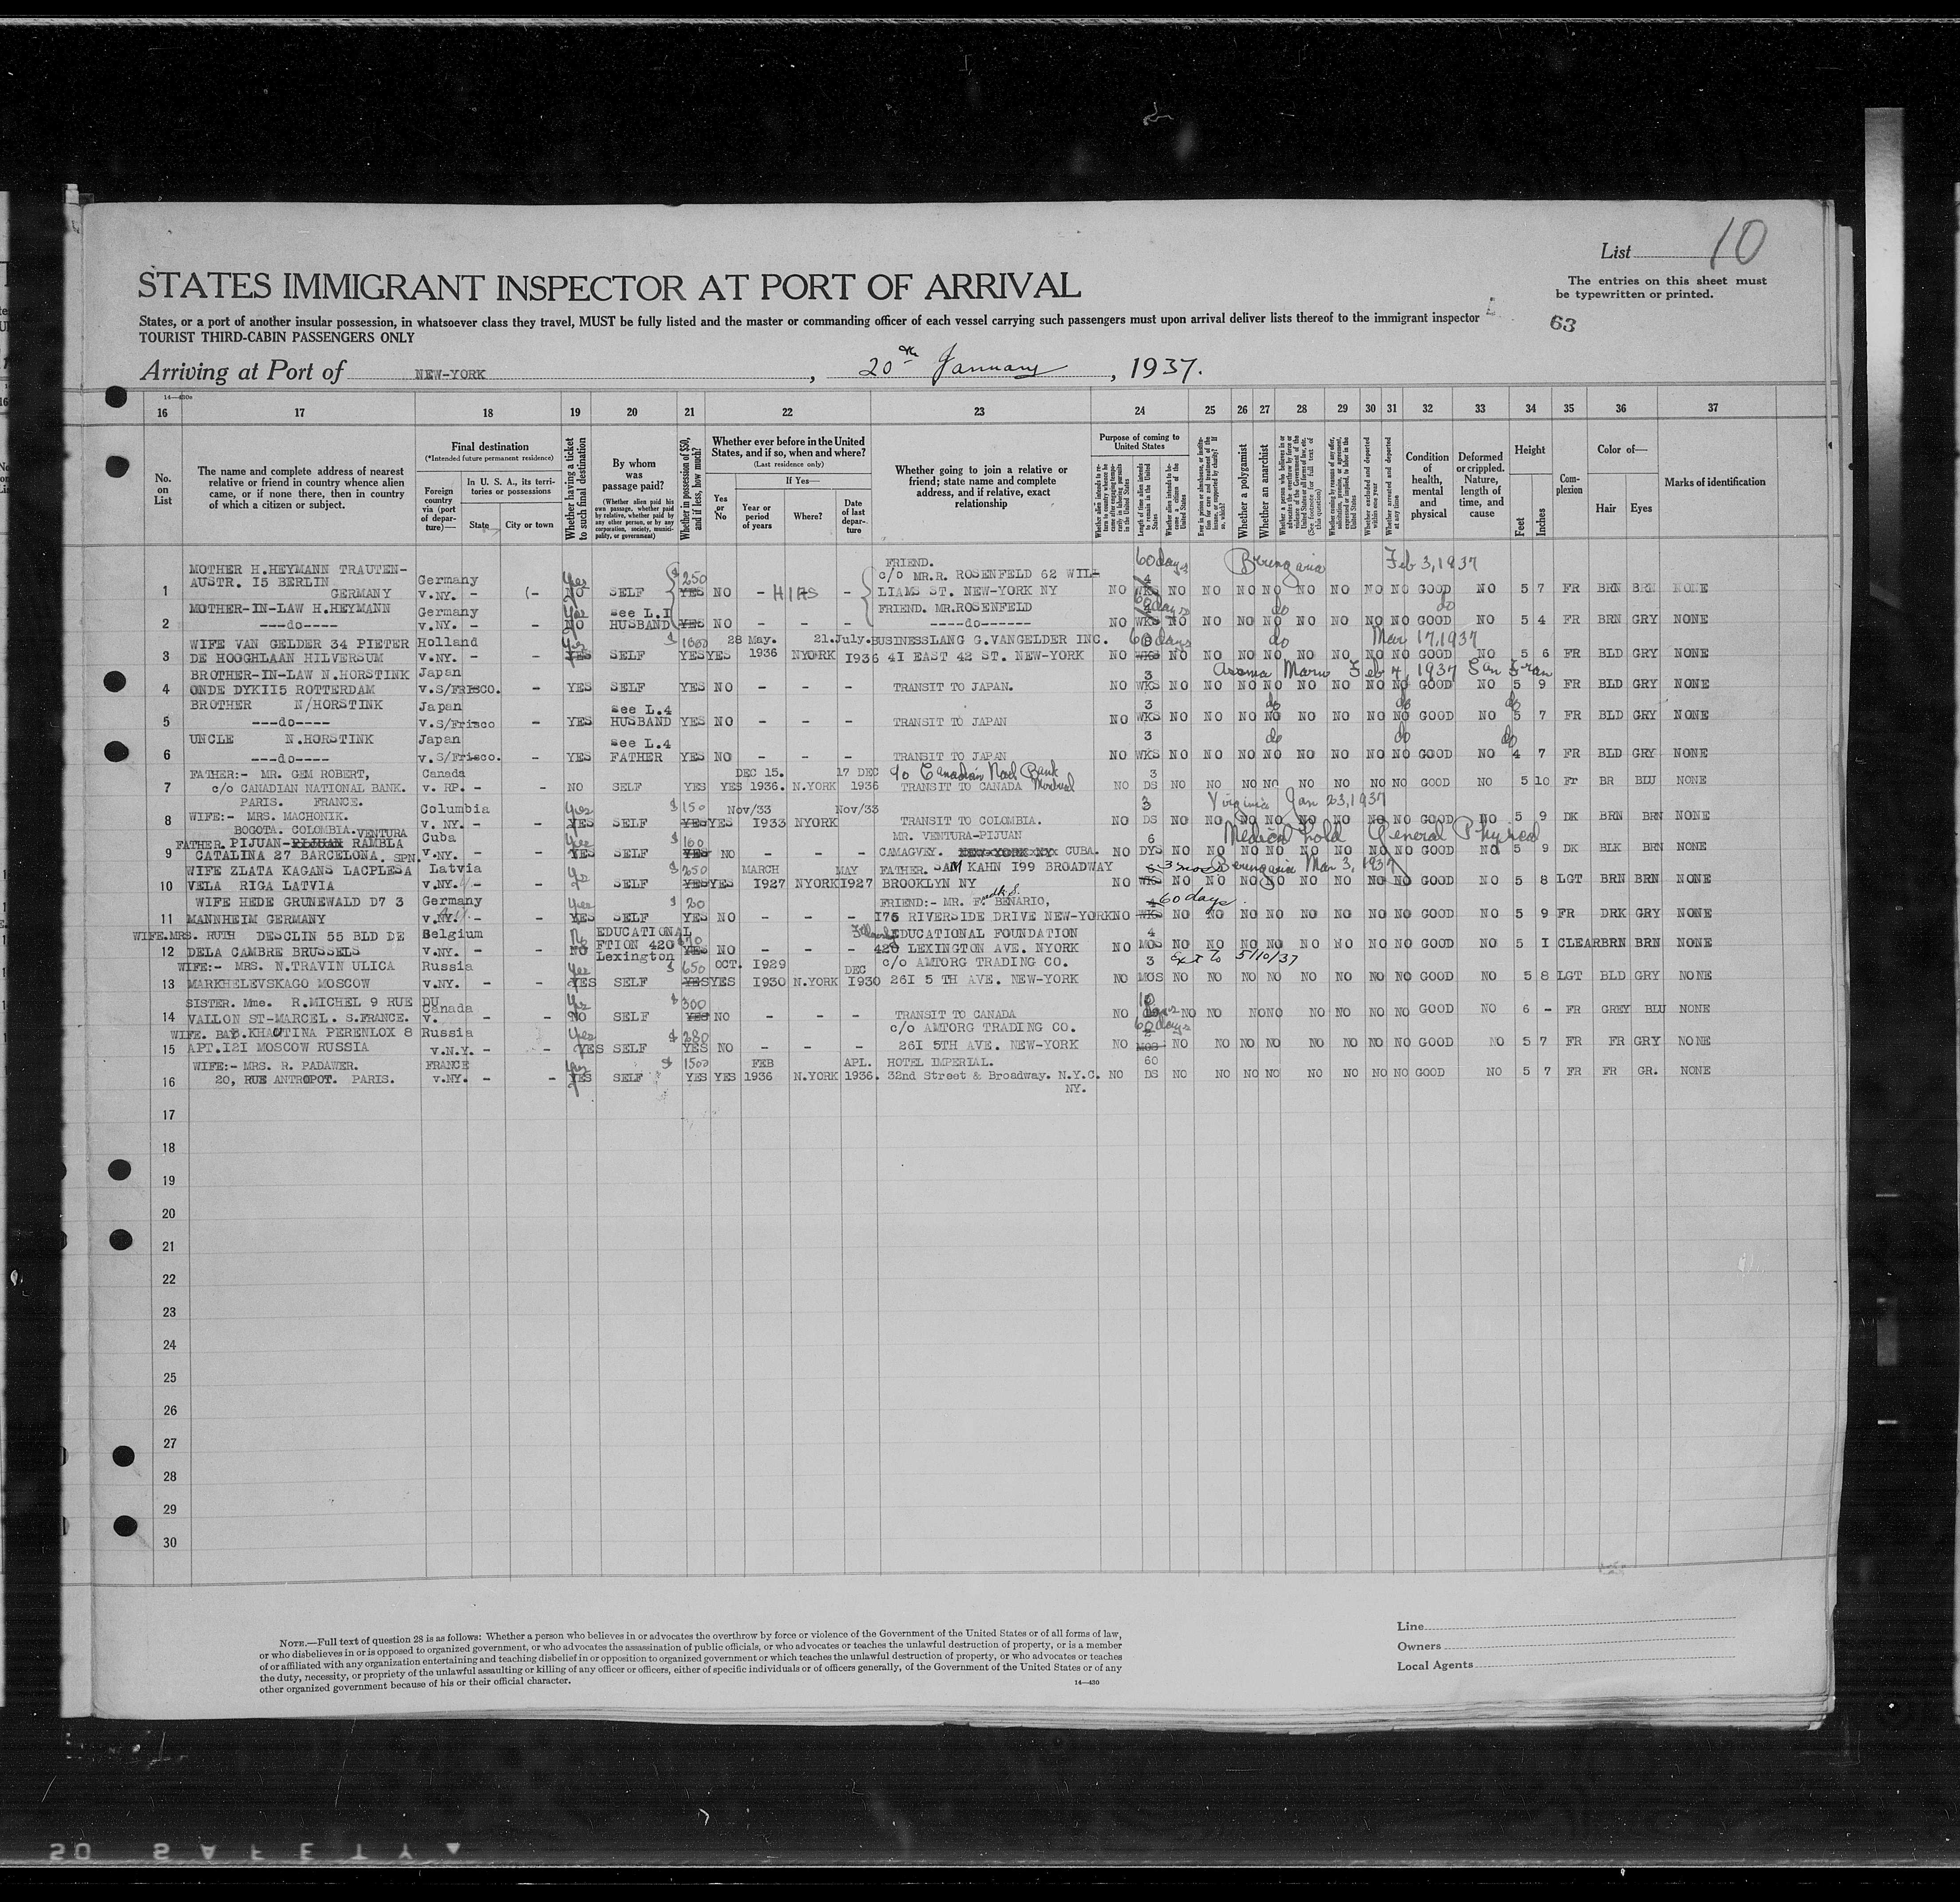 List 10
The entries on this sheet must
be typewritten or printed.
STATES IMMIGRANT INSPECTOR AT PORT OF ARRIVAL
States, or a port of another insular possession, in whatsoever class they travel, MUST be fully listed and the master or commanding officer of each vessel carrying such passengers must upon arrival deliver lists thereof to the immigrant inspector
63
TOURIST THIRD-CABIN PASSENGERS ONLY
Arriving at Port of NEW-YORK, 20th January, 1937.
14—430a
16 17 18 19 20 21 22 23 24 25 26 27 28 29 30 31 32 33 34 35 36 37
No. on List
The name and complete address of nearest relative or friend in country whence alien came, or if none there, then in country of which a citizen or subject.
Final destination
(*Intended future permanent residence)
Foreign country via (port of departure)—
In U. S. A., its territories or possessions
State
City or town
Whether having a ticket to such final destination
By whom was passage paid?
(Whether alien paid his own passage, whether paid by relative, whether paid by any other person, or by any corporation, society, municipality, or government)
Whether in possession of $50, and if less, how much?
Whether ever before in the United States, and if so, when and where?
(Last residence only)
Yes or No
If Yes—
Year or period of years
Where?
Date of last departure
Whether going to join a relative or friend; state name and complete address, and if relative, exact relationship
Purpose of coming to United States
Length of time alien intends to remain in the United States
Whether a polygamist
Whether an anarchist
Whether excluded and deported within one year
Whether arrested and deported at any time
Condition of health, mental and physical
Deformed or crippled. Nature, length of time, and cause
Height
Feet
Inches
Complexion
Color of—
Hair
Eyes
Marks of identification
60 days Berengaria Feb 3, 1937
1 MOTHER H.HEYMANN TRAUTEN- AUSTR. I5 BERLIN GERMANY Germany v.NY. - - Yes NO SELF $250 YES NO - HIAS - FRIEND. c/o MR.R. ROSENFELD 62 WIL- LIAMS ST. NEW-YORK NY NO 4 WKS NO NO NO NO NO NO NO NO GOOD NO 5 7 FR BRN BRN NONE
2 MOTHER-IN-LAW H.HEYMANN ----do---- Germany v.NY. - - Yes NO see L.I HUSBAND YES NO - - - FRIEND. MR.ROSENFELD ----do------ NO 60 days WKS NO NO NO NO do NO NO NO NO GOOD do NO 5 4 FR BRN GRY NONE
3 WIFE VAN GELDER 34 PIETER DE HOOGHLAAN HILVERSUM Holland v.NY. - - Yes YES SELF $ 1000 YES YES 28 May. 1936 NYORK 21.July. I936 BUSINESSLANG G.VANGELDER INC. 4I EAST 42 ST. NEW-YORK NO 60 days WKS NO NO NO NO do NO NO NO NO GOOD Mar 17, 1937 NO 5 6 FR BLD GRY NONE
Asama Maru Feb 4, 1937 San Fran
4 BROTHER-IN-LAW N.HORSTINK ONDE DYKII5 ROTTERDAM Japan v.S/FRISCO. - YES SELF YES NO - - - TRANSIT TO JAPAN. NO 3 WKS NO NO NO NO NO NO NO NO GOOD NO 5 9 FR BLD GRY NONE
5 BROTHER N/HORSTINK ----do---- Japan v.S/Frisco - YES see L.4 HUSBAND YES NO - - - TRANSIT TO JAPAN NO 3 WKS NO NO NO do NO NO NO NO do NO GOOD NO do 5 7 FR BLD GRY NONE
6 UNCLE N.HORSTINK ----do---- Japan v.S/Frisco. - YES see L.4 FATHER YES NO - - - TRANSIT TO JAPAN NO 3 WKS NO NO NO do NO NO NO NO do NO GOOD NO do 4 7 FR BLD GRY NONE
7 FATHER:- MR. GEM ROBERT, c/o CANADIAN NATIONAL BANK. PARIS. FRANCE. Canada v. RP. - NO SELF YES YES DEC 15. 1936. N.YORK 17 DEC 1936 c/o Canadian Natl Bank TRANSIT TO CANADA Montreal NO 3 DS NO NO NO NO NO NO NO NO GOOD NO 5 10 Fr BR BLU NONE
Virginia Jan 23, 1937
8 WIFE:- MRS. MACHONIK. BOGOTA. COLOMBIA. Columbia v. NY. - - Yes YES SELF $ 150 YES YES Nov/33 I933 NYORK Nov/33 TRANSIT TO COLOMBIA. NO 3 DS NO NO NO NO NO NO NO NO GOOD NO 5 9 DK BRN BRN NONE
Medical hold General Physical
9 FATHER. PIJUAN-PIJUAN VENTURA RAMBLA CATALINA 27 BARCELONA. SPN. Cuba v.NY. - - Yes YES SELF $ 160 YES NO - - - MR. VENTURA-PIJUAN CAMAGVEY. NEW-YORK NY. CUBA. NO 6 DYS NO NO NO NO NO NO NO NO GOOD NO 5 9 DK BLK BRN NONE
10 WIFE ZLATA KAGANS LACPLESA VELA RIGA LATVIA Latvia v.NY. - - Yes SELF $ 250 YES YES MARCH I927 NYORK MAY I927 FATHER. SAM KAHN I99 BROADWAY BROOKLYN NY NO 3 mos WKS NO Berengaria Mar 3, 1937 NO NO NO NO NO NO NO GOOD NO 5 8 LGT BRN BRN NONE
11 WIFE HEDE GRUNEWALD D7 3 MANNHEIM GERMANY Germany v.NY. - - Yes YES SELF $ 20 YES NO - - - FRIEND:- MR. Fredk S. BENARIO, 175 RIVERSIDE DRIVE NEW-YORK NO 60 days WKS NO NO NO NO NO NO NO NO GOOD NO 5 9 FR DRK GRY NONE
12 WIFE.MRS. RUTH DESCLIN 55 BLD DE DELA CAMBRE BRUSSELS Belgium v.NY. - - No NO EDUCATIONAL FTION 420 Lexington $70 YES NO - - - EDUCATIONAL FOUNDATION 420 LEXINGTON AVE. NYORK NO 4 MOS NO NO NO NO NO NO NO NO GOOD NO 5 I CLEAR BRN BRN NONE
13 WIFE:- MRS. N.TRAVIN ULICA MARKHELEVSKAGO MOSCOW Russia v.NY. - - Yes YES SELF $ 650 YES YES OCT. I929 I930 N.YORK DEC I930 c/o AMTORG TRADING CO. 26I 5 TH AVE. NEW-YORK NO 3 MOS NO Ext to 5/10/37 NO NO NO NO NO NO NO GOOD NO 5 8 LGT BLD GRY NONE
14 SISTER. Mme. R.MICHEL 9 RUE DU VALLON ST-MARCEL. S.FRANCE. Canada v. - - Yes NO SELF $ 300 YES NO - - - TRANSIT TO CANADA NO 10 days NO NO NO NO NO NO NO NO GOOD NO 6 - FR GREY BLU NONE
15 WIFE. B.KHAUTINA PERENLOX 8 APT.I2I MOSCOW RUSSIA Russia v.N.Y. - - Yes YES SELF $ 280 YES NO - - - c/o AMTORG TRADING CO. 26I 5TH AVE. NEW-YORK NO 60 days MOS NO NO NO NO NO NO NO NO GOOD NO 5 7 FR FR GRY NONE
16 WIFE:- MRS. R. PADAWER. 20, RUE ANTROPOT. PARIS. FRANCE v.NY. - - Yes YES SELF $ 1500 YES YES FEB 1936 N.YORK APL. 1936. HOTEL IMPERIAL. 32nd Street & Broadway. N.Y.C. NY. NO 60 DS NO NO NO NO NO NO NO NO GOOD NO 5 7 FR FR GR. NONE
17
18
19
20
21
22
23
24
25
26
27
28
29
30
NOTE.—Full text of question 28 is as follows: Whether a person who believes in or advocates the overthrow by force or violence of the Government of the United States or of all forms of law,
or who disbelieves in or is opposed to organized government, or who advocates the assassination of public officials, or who advocates or teaches the unlawful destruction of property, or is a member
of or affiliated with any organization entertaining and teaching disbelief in or opposition to organized government or which teaches the unlawful destruction of property, or who advocates or teaches
the duty, necessity, or propriety of the unlawful assaulting or killing of any officer or officers, either of specific individuals or of officers generally, of the Government of the United States or of any
other organized government because of his or their official character.
14—430
Line
Owners
Local Agents
50 SAFETY